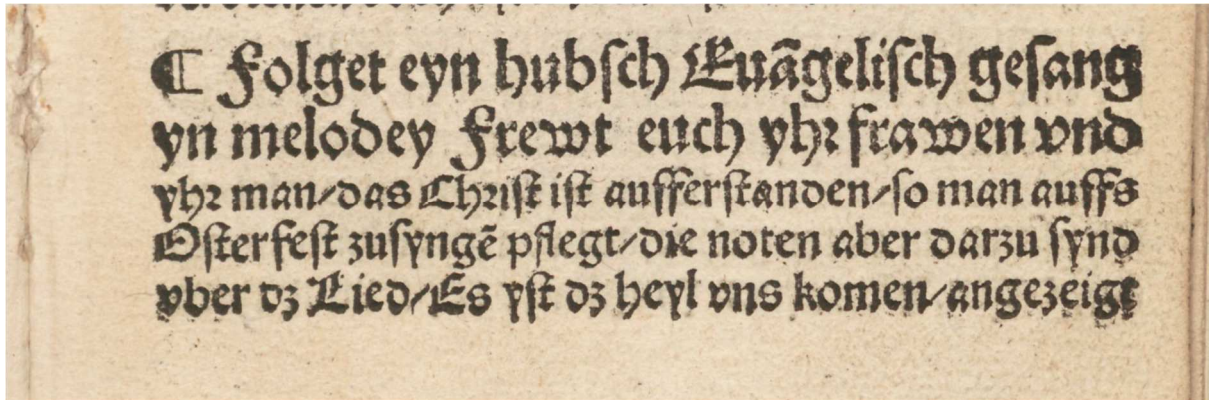 ¶ Folget eyn hubſch Euāgeliſch geſang
yn melodey Frewt euch yhr frawen vnd
yhr man/das Chriſt iſt aufferſtanden/ſo man auffs
Oſterfeſt zuſyngē pflegt/die noten aber darzu ſynd
vber dz Lied/Es yſt dz heyl vns komen/angezeigt